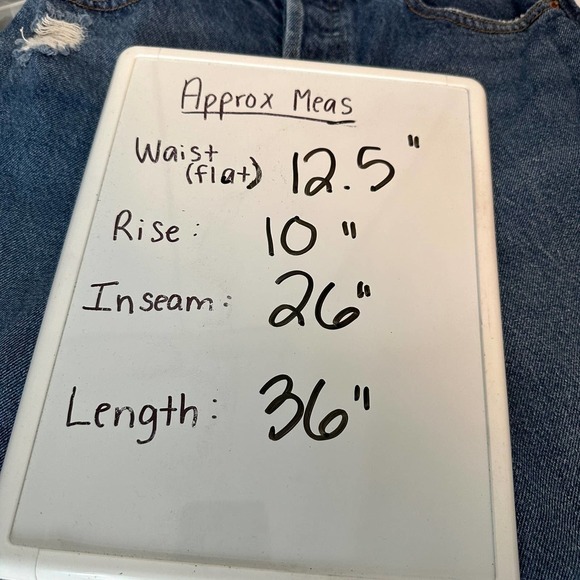 Approx Meas
Waist
(flat) 12.5"
Rise: 10"
Inseam: 26"
Length: 36"